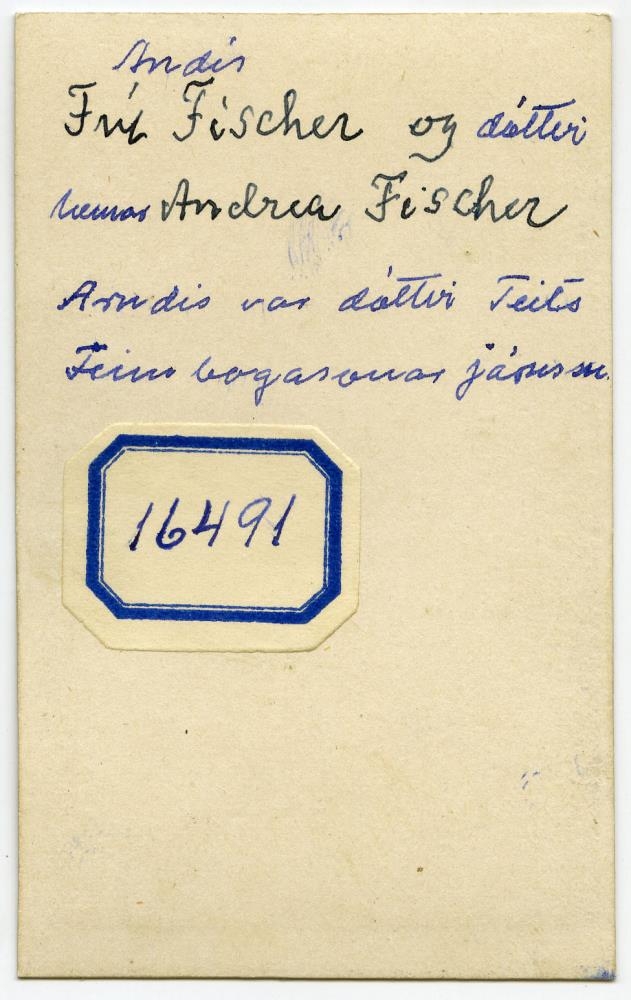 Arndis
Frú Fischer og dóttir
hennar Andrea Fischer
Arndis var dóttir Teits
Finnbogasonar járnsm.
16491